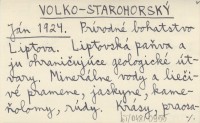 VOLKO-STAROHORSKÝ
Ján 1924. Prírodné bohatstvo
Liptova. Liptovská paňva a
ju ohraničujúce geologické út-
vary. Minerálne vody a lieči-
vé pramene, jaskyne, kame-
ňolomy, rúdy. Krásy, praosa-